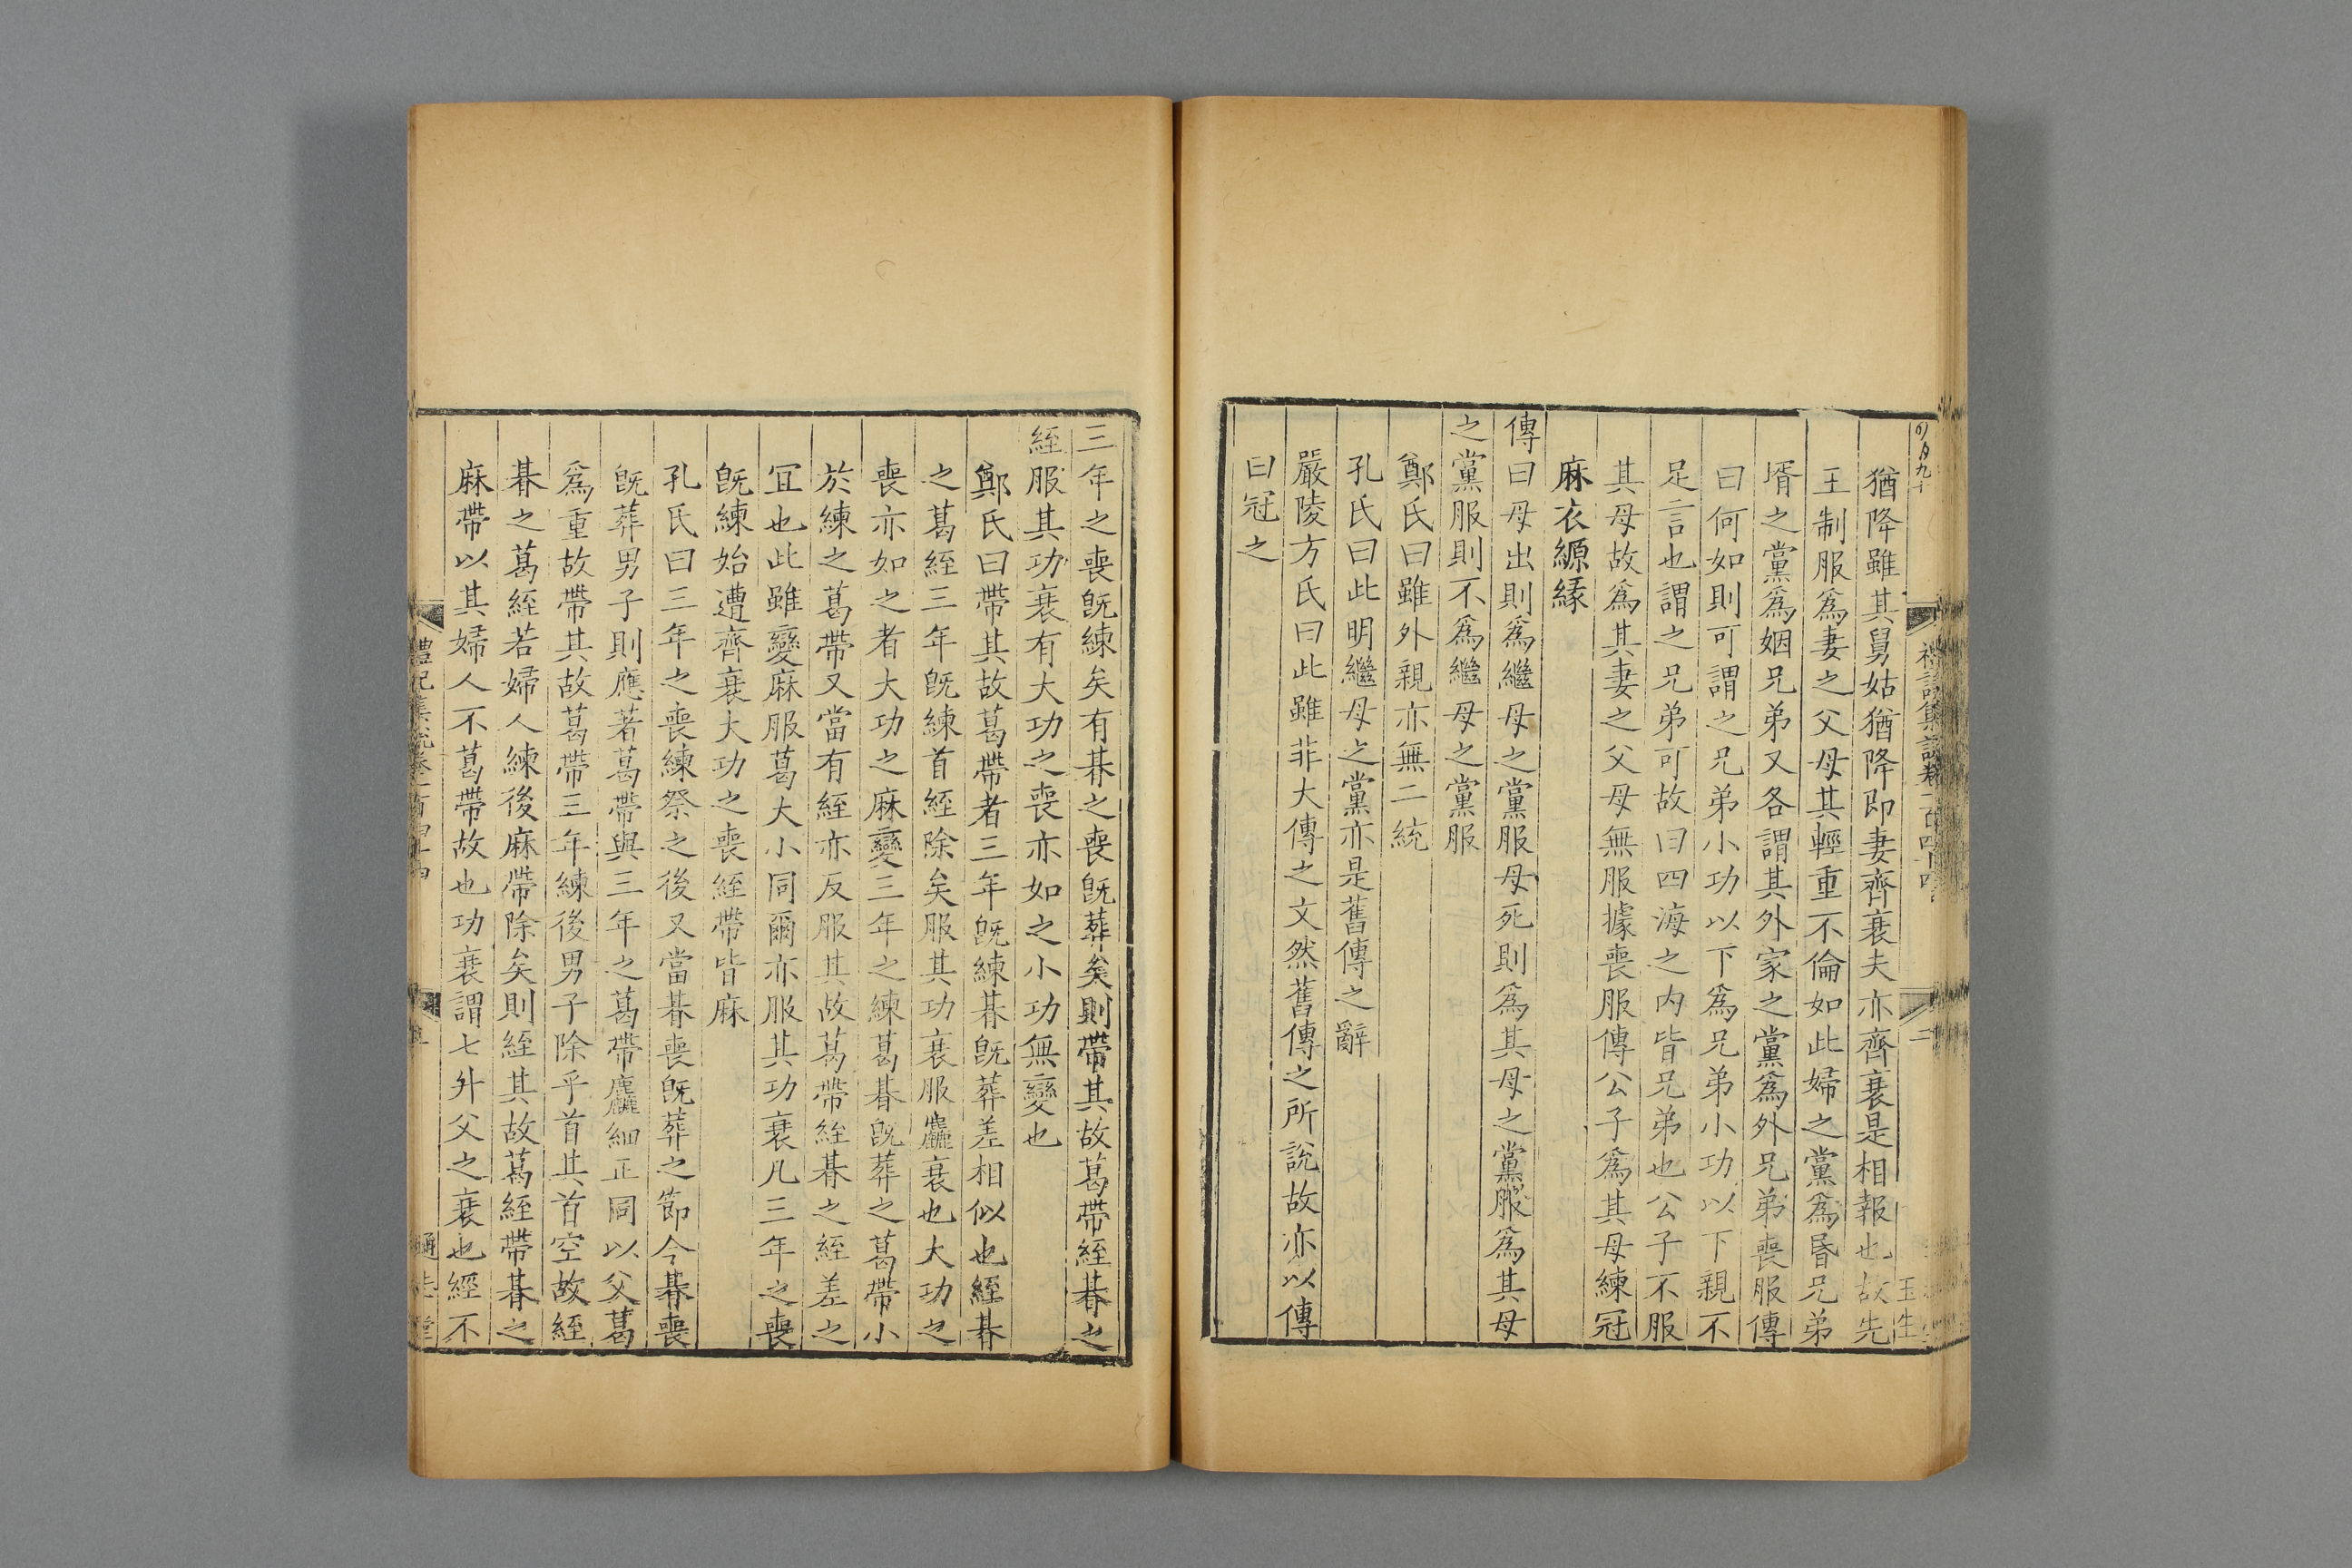 猶降雖其舅姑猶降即妻齊衰夫亦齊衰是相報也故先
王制服爲妻之父母其輕重不倫如此婦之黨爲昬兄弟
壻之黨爲姻兄弟又各謂其外家之黨爲外兄弟喪服傳
曰何如則可謂之兄弟小功以下爲兄弟小功以下親不
足言也謂之兄弟可故曰四海之内皆兄弟也公子不服
其母故爲其妻之父母無服據喪服傳公子爲其母練冠
麻衣縓緣
傳曰母出則爲繼母之黨服母死則爲其母之黨服爲其母
之黨服則不爲繼母之黨服
鄭氏曰雖外親亦無二統
孔氏曰此明繼母之黨亦是舊傳之辭
嚴陵方氏曰此雖非大傳之文然舊傳之所說故亦以傳
曰冠之
三年之喪旣練矣有朞之喪旣葬矣則帶其故葛帶絰朞之
絰服其功衰有大功之喪亦如之小功無變也
鄭氏曰帶其故葛帶者三年旣練朞旣葬差相似也絰朞
之葛絰三年旣練首絰除矣服其功衰服麤衰也大功之
喪亦如之者大功之麻變三年之練葛朞旣葬之葛帶小
於練之葛帶又當有絰亦反服其故葛帶絰朞之絰差之
宜也此雖變麻服葛大小同爾亦服其功衰凡三年之喪
旣練始遭齊衰大功之喪絰帶皆麻
孔氏曰三年之喪練祭之後又當朞喪旣葬之節今朞喪
旣葬男子則應著葛帶與三年之葛帶麤細正同以父葛
爲重故帶其故葛帶三年練後男子除乎首其首空故絰
朞之葛絰若婦人練後麻帶除矣則絰其故葛絰帶朞之
麻帶以其婦人不葛帶故也功衰謂七升父之衰也經不
禮記集說卷一百四十四
通志堂